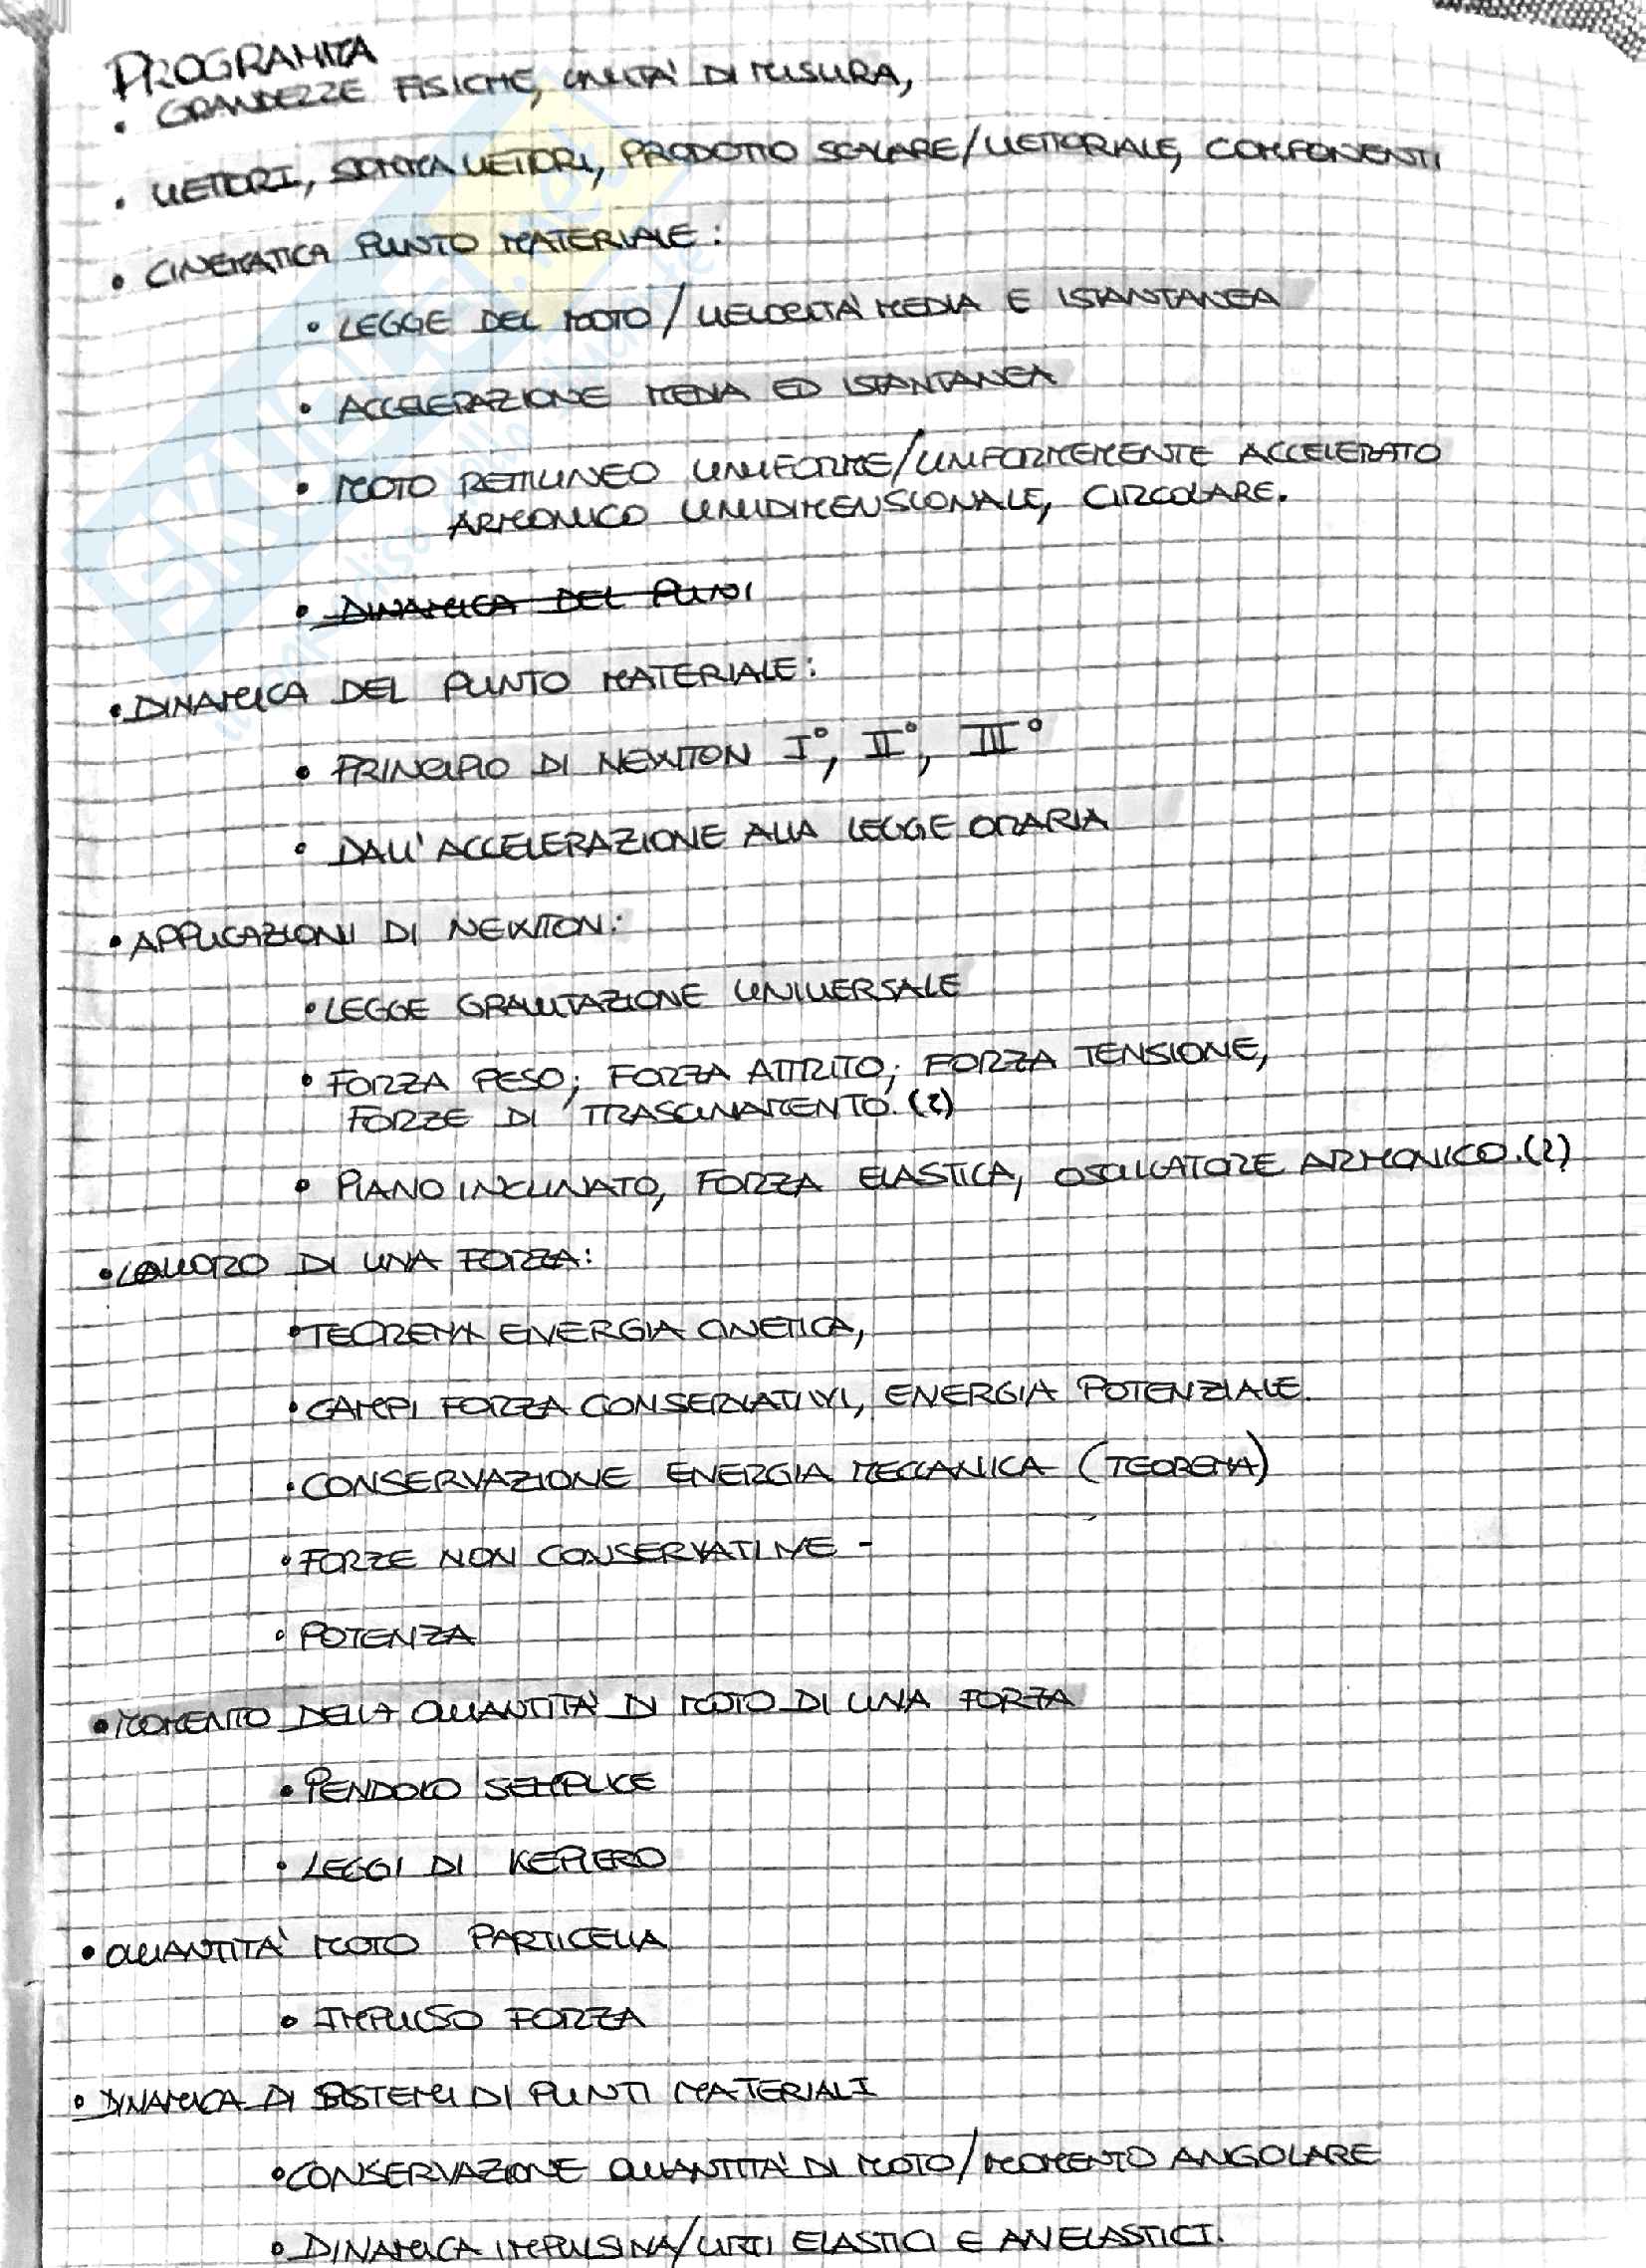 PROGRAMMA
• GRANDEZZE FISICHE, UNITA' DI MISURA,
• VETTORI, SOMMA VETTORI, PRODOTTO SCALARE/VETTORIALE, COMPONENTI
• CINEMATICA PUNTO MATERIALE:
• LEGGE DEL MOTO / VELOCITA' MEDIA E ISTANTANEA
• ACCELERAZIONE MEDIA ED ISTANTANEA
• MOTO RETTILINEO UNIFORME/UNIFORMEMENTE ACCELERATO
ARMONICO UNIDIMENSIONALE, CIRCOLARE.
• DINAMICA DEL PUNI
• DINAMICA DEL PUNTO MATERIALE:
• PRINCIPIO DI NEWTON I°, II°, III°
• DALL'ACCELERAZIONE ALLA LEGGE ORARIA
• APPLICAZIONI DI NEWTON:
• LEGGE GRAVITAZIONE UNIVERSALE
• FORZA PESO; FORZA ATTRITO; FORZA TENSIONE,
FORZE DI TRASCINAMENTO. (2)
• PIANO INCLINATO, FORZA ELASTICA, OSCILLATORE ARMONICO. (2)
• LAVORO DI UNA FORZA:
• TEOREMA ENERGIA CINETICA,
• CAMPI FORZA CONSERVATIVI, ENERGIA POTENZIALE.
• CONSERVAZIONE ENERGIA MECCANICA (TEOREMA)
• FORZE NON CONSERVATIVE -
• POTENZA
• MOMENTO DELLA QUANTITA' DI MOTO DI UNA FORZA
• PENDOLO SEMPLICE
• LEGGI DI KEPLERO
• QUANTITA' MOTO PARTICELLA
• IMPULSO FORZA
• DINAMICA DI SISTEMI DI PUNTI MATERIALI
• CONSERVAZIONE QUANTITA' DI MOTO/MOMENTO ANGOLARE
• DINAMICA IMPULSIVA/URTI ELASTICI E ANELASTICI.